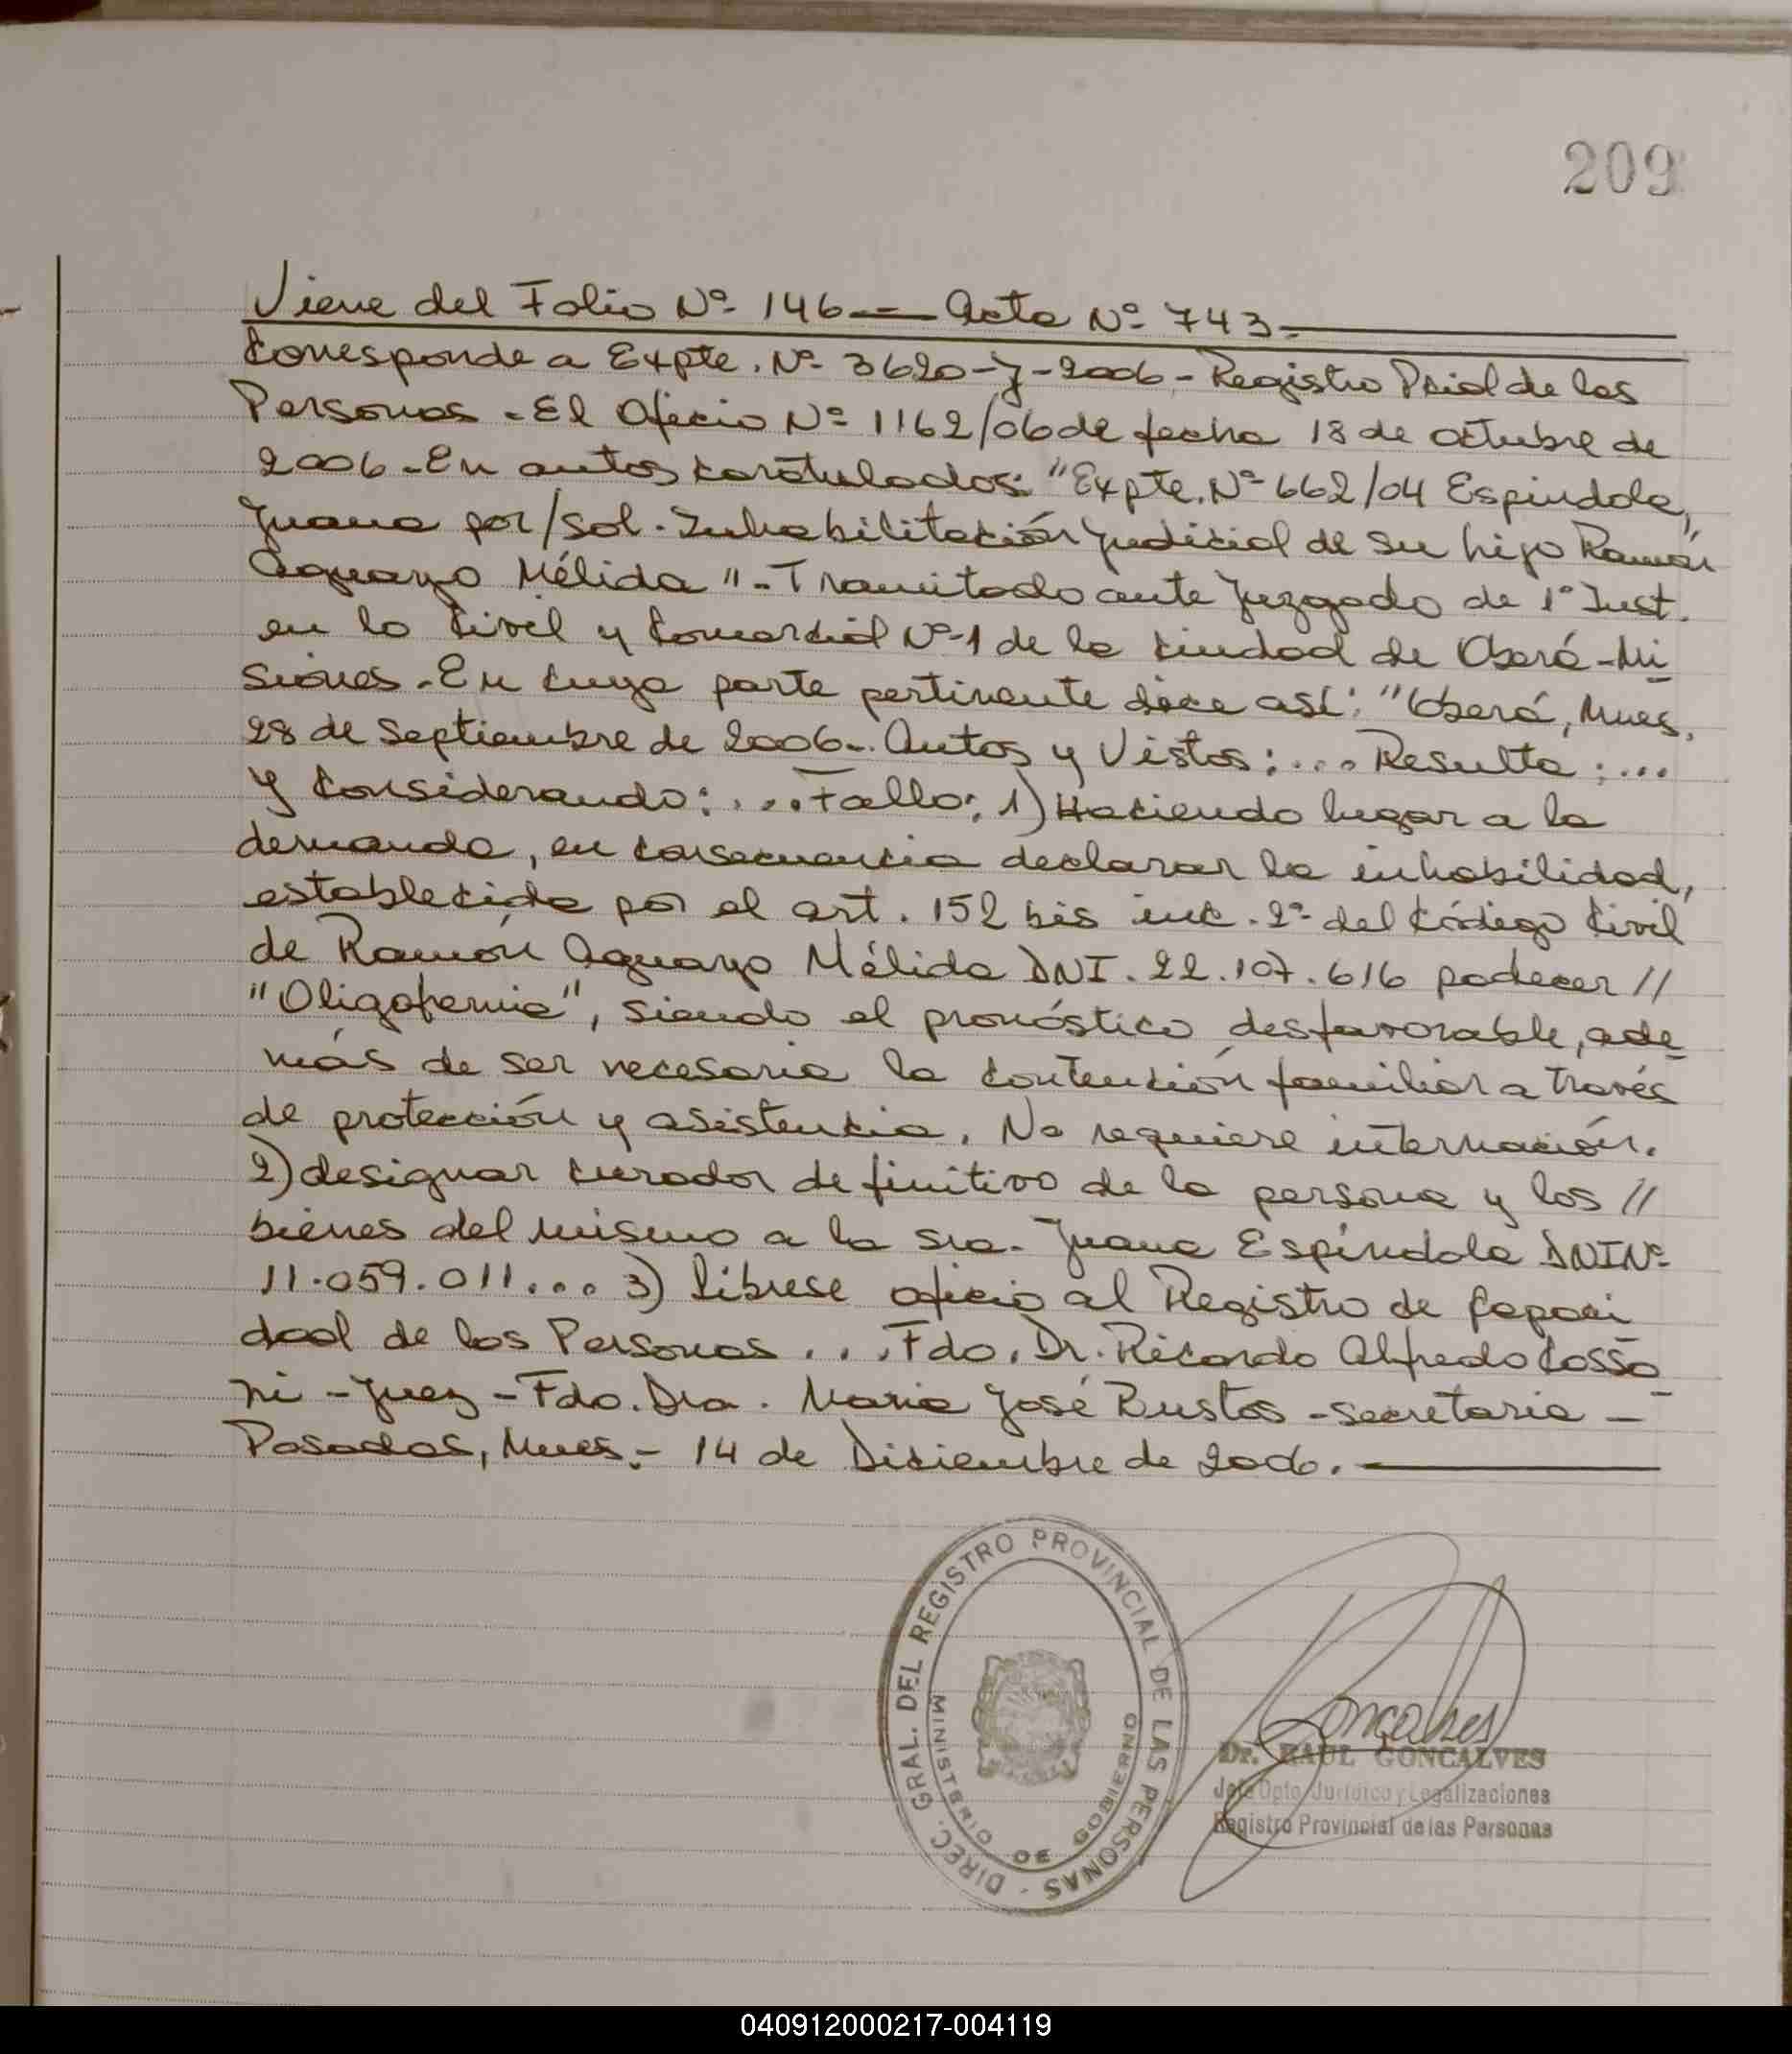 209
Viene del Folio Nº 146 — Acta Nº 743.
Corresponde a Expte. Nº 3620-J-2006 - Registro Pcial de las
Personas - El Oficio Nº 1162/06 de fecha 18 de octubre de
2006 - En autos caratulados: "Expte. Nº 662/04 Espíndola,
Juana por/sol. Inhabilitación Judicial de su hijo Ramón
Aguayo Mélida" - Tramitado ante Juzgado de 1º Inst.
en lo Civil y Comercial Nº 1 de la Ciudad de Oberá - Mi
siones - En cuya parte pertinente dice así: "Oberá, Mnes,
28 de Septiembre de 2006 -. Autos y Vistos: ... Resulta: ...
y Considerando: ... Fallo: 1) Haciendo lugar a la
demanda, en consecuencia declarar la inhabilidad,
establecida por el art. 152 bis inc. 2º del Código Civil
de Ramón Aguayo Mélida DNI. 22.107.616 padecer //
"Oligofernia", siendo el pronóstico desfavorable, ade
más de ser necesaria la contención familiar a través
de protección y asistencia. No requiere internación.
2) designar curador definitivo de la persona y los //
bienes del mismo a la sra. Juana Espíndola DNI Nº
11.059.011 ... 3) Líbrese oficio al Registro de Capaci
dad de las Personas ... Fdo. Dr. Ricardo Alfredo Casso
ni - Juez - Fdo. Dra. Maria José Bustos - secretaria -
Posadas, Mnes. - 14 de Diciembre de 2006.
DIREC. GRAL. DEL REGISTRO PROVINCIAL DE LAS PERSONAS -
MINISTERIO DE GOBIERNO
Goncalves
Dr. RAUL GONCALVES
Jefe Dpto. Jurídico y Legalizaciones
Registro Provincial de las Personas
040912000217-004119